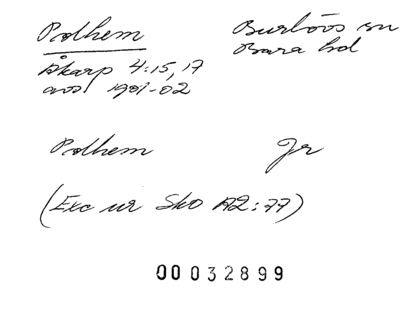 Polhem
Burlövs sn
Bara hd
Åkarp 4:15,17
avs 1901-02
Polhem Jr
(Exc ur Sko A2:77)
00032899